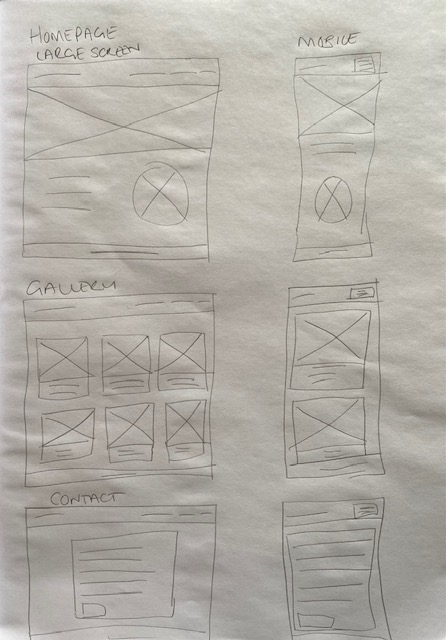 HOMEPAGE
LARGE SCREEN
MOBILE
GALLERY
CONTACT